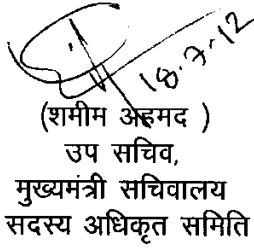 18.7.12
(शमीम अहमद )
उप सचिव,
मुख्यमंत्री सचिवालय
सदस्य अधिकृत समिति